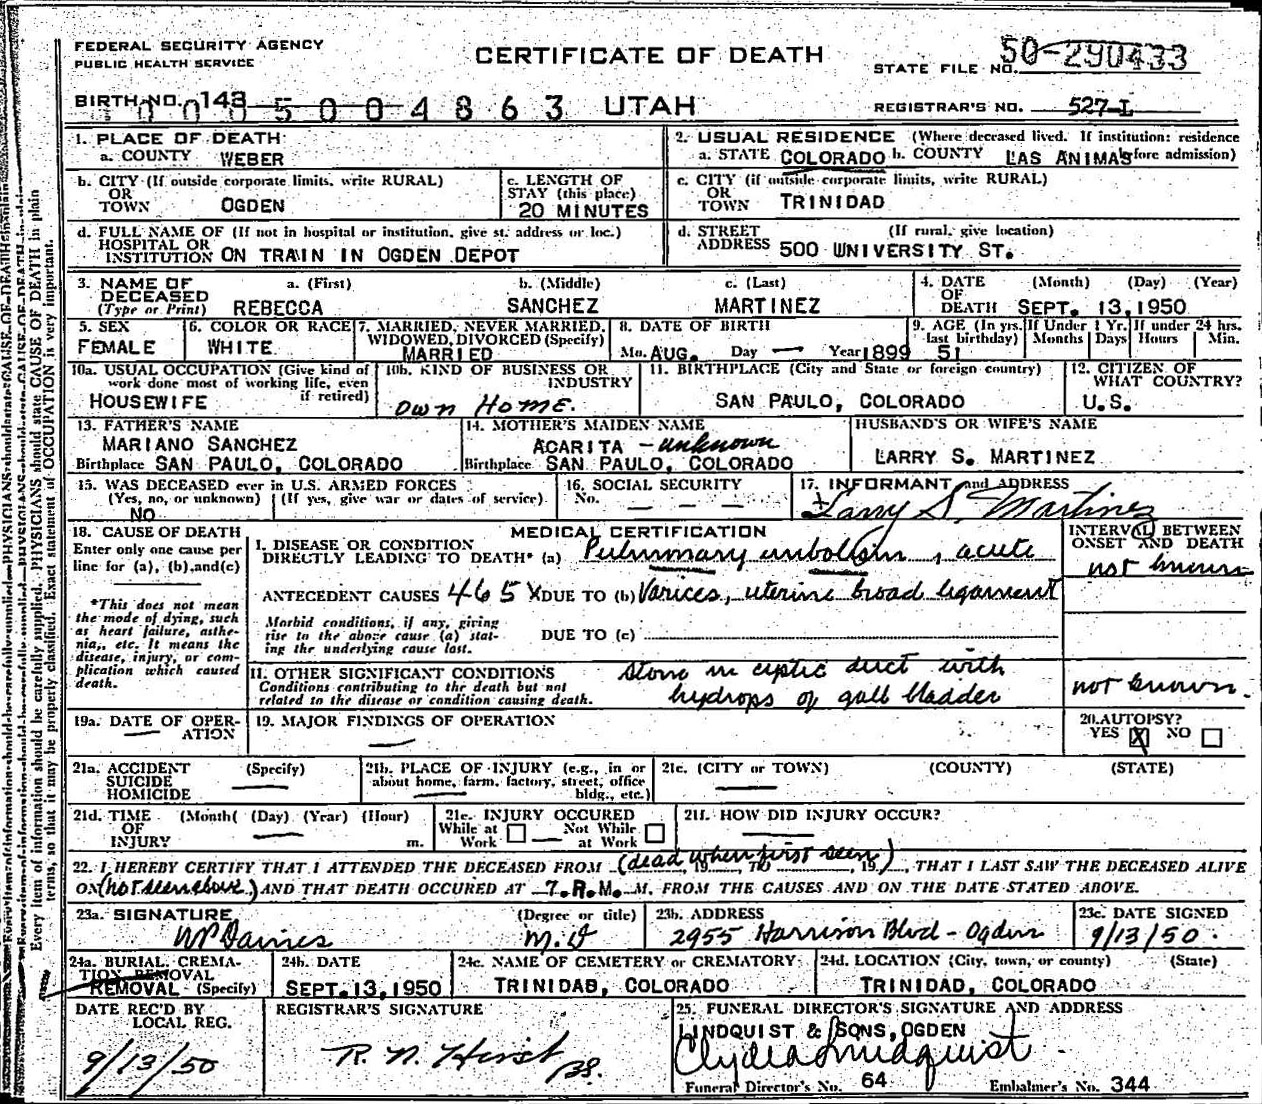 FEDERAL SECURITY AGENCY
PUBLIC HEALTH SERVICE
CERTIFICATE OF DEATH
STATE FILE NO. 50-290433
BIRTH NO. 143 0005004863 UTAH
REGISTRAR'S NO. 527-L
1. PLACE OF DEATH
a. COUNTY WEBER
2. USUAL RESIDENCE (Where deceased lived. If institution: residence before admission)
a. STATE COLORADO b. COUNTY LAS ANIMAS
b. CITY (If outside corporate limits, write RURAL)
OR
TOWN OGDEN
c. LENGTH OF
STAY (this place)
20 MINUTES
c. CITY (if outside corporate limits, write RURAL)
OR
TOWN TRINIDAD
d. FULL NAME OF (If not in hospital or institution, give st. address or loc.)
HOSPITAL OR
INSTITUTION ON TRAIN IN OGDEN DEPOT
d. STREET (If rural, give location)
ADDRESS 500 UNIVERSITY ST.
3. NAME OF
DECEASED
(Type or Print)
a. (First) b. (Middle) c. (Last)
REBECCA SANCHEZ MARTINEZ
4. DATE (Month) (Day) (Year)
OF
DEATH SEPT. 13, 1950
5. SEX
FEMALE
6. COLOR OR RACE
WHITE
7. MARRIED, NEVER MARRIED,
WIDOWED, DIVORCED (Specify)
MARRIED
8. DATE OF BIRTH
Mo. AUG. Day — Year 1899
9. AGE (In yrs. last birthday) 51
If Under 1 Yr. Months Days
If under 24 hrs. Hours Min.
10a. USUAL OCCUPATION (Give kind of
work done most of working life, even
if retired)
HOUSEWIFE
10b. KIND OF BUSINESS OR
INDUSTRY
OWN HOME.
11. BIRTHPLACE (City and State or foreign country)
SAN PAULO, COLORADO
12. CITIZEN OF
WHAT COUNTRY?
U.S.
13. FATHER'S NAME
MARIANO SANCHEZ
Birthplace SAN PAULO, COLORADO
14. MOTHER'S MAIDEN NAME
ACARITA - unknown
Birthplace SAN PAULO, COLORADO
HUSBAND'S OR WIFE'S NAME
LARRY S. MARTINEZ
15. WAS DECEASED ever in U.S. ARMED FORCES
(Yes, no, or unknown) (If yes, give war or dates of service)
NO
16. SOCIAL SECURITY
No. — — —
17. INFORMANT and ADDRESS
Larry S. Martinez
18. CAUSE OF DEATH
Enter only one cause per
line for (a), (b), and (c)
*This does not mean
the mode of dying, such
as heart failure, asthe-
nia, etc. It means the
disease, injury, or com-
plication which caused
death.
MEDICAL CERTIFICATION
I. DISEASE OR CONDITION
DIRECTLY LEADING TO DEATH* (a) Pulmonary embolism, acute
ANTECEDENT CAUSES 465X DUE TO (b) Varices, uterine broad ligament
Morbid conditions, if any, giving
rise to the above cause (a) stat-
ing the underlying cause last.
DUE TO (c)
II. OTHER SIGNIFICANT CONDITIONS
Conditions contributing to the death but not
related to the disease or condition causing death.
Stone in cystic duct with
hydrops of gall bladder
INTERVAL BETWEEN
ONSET AND DEATH
not known
not known.
19a. DATE OF OPER-
ATION
19. MAJOR FINDINGS OF OPERATION
20. AUTOPSY?
YES X NO
21a. ACCIDENT (Specify)
SUICIDE
HOMICIDE
21b. PLACE OF INJURY (e.g., in or
about home, farm, factory, street, office
bldg., etc.)
21c. (CITY or TOWN) (COUNTY) (STATE)
21d. TIME (Month( (Day) (Year) (Hour)
OF
INJURY m.
21e. INJURY OCCURED
While at Work Not While at Work
21f. HOW DID INJURY OCCUR?
22. I HEREBY CERTIFY THAT I ATTENDED THE DECEASED FROM (dead when first seen), 19 TO , 19 , THAT I LAST SAW THE DECEASED ALIVE
ON (not seen alive.) AND THAT DEATH OCCURED AT 7.P.M. M. FROM THE CAUSES AND ON THE DATE STATED ABOVE.
23a. SIGNATURE (Degree or title)
WP Davies M.D
23b. ADDRESS
2955 Harrison Blvd - Ogden
23c. DATE SIGNED
9/13/50.
24a. BURIAL, CREMA-
TION REMOVAL
REMOVAL (Specify)
24b. DATE
SEPT. 13, 1950
24c. NAME OF CEMETERY or CREMATORY
TRINIDAD, COLORADO
24d. LOCATION (City, town, or county) (State)
TRINIDAD, COLORADO
DATE REC'D BY
LOCAL REG.
9/13/50
REGISTRAR'S SIGNATURE
R. N. Hirst
25. FUNERAL DIRECTOR'S SIGNATURE AND ADDRESS
LINDQUIST & SONS, OGDEN
Clyde Lindquist
Funeral Director's No. 64 Embalmer's No. 344
Every item of information should be carefully supplied. PHYSICIANS should state CAUSE OF DEATH in plain
terms, so that it may be properly classified. Exact statement of OCCUPATION is very important.